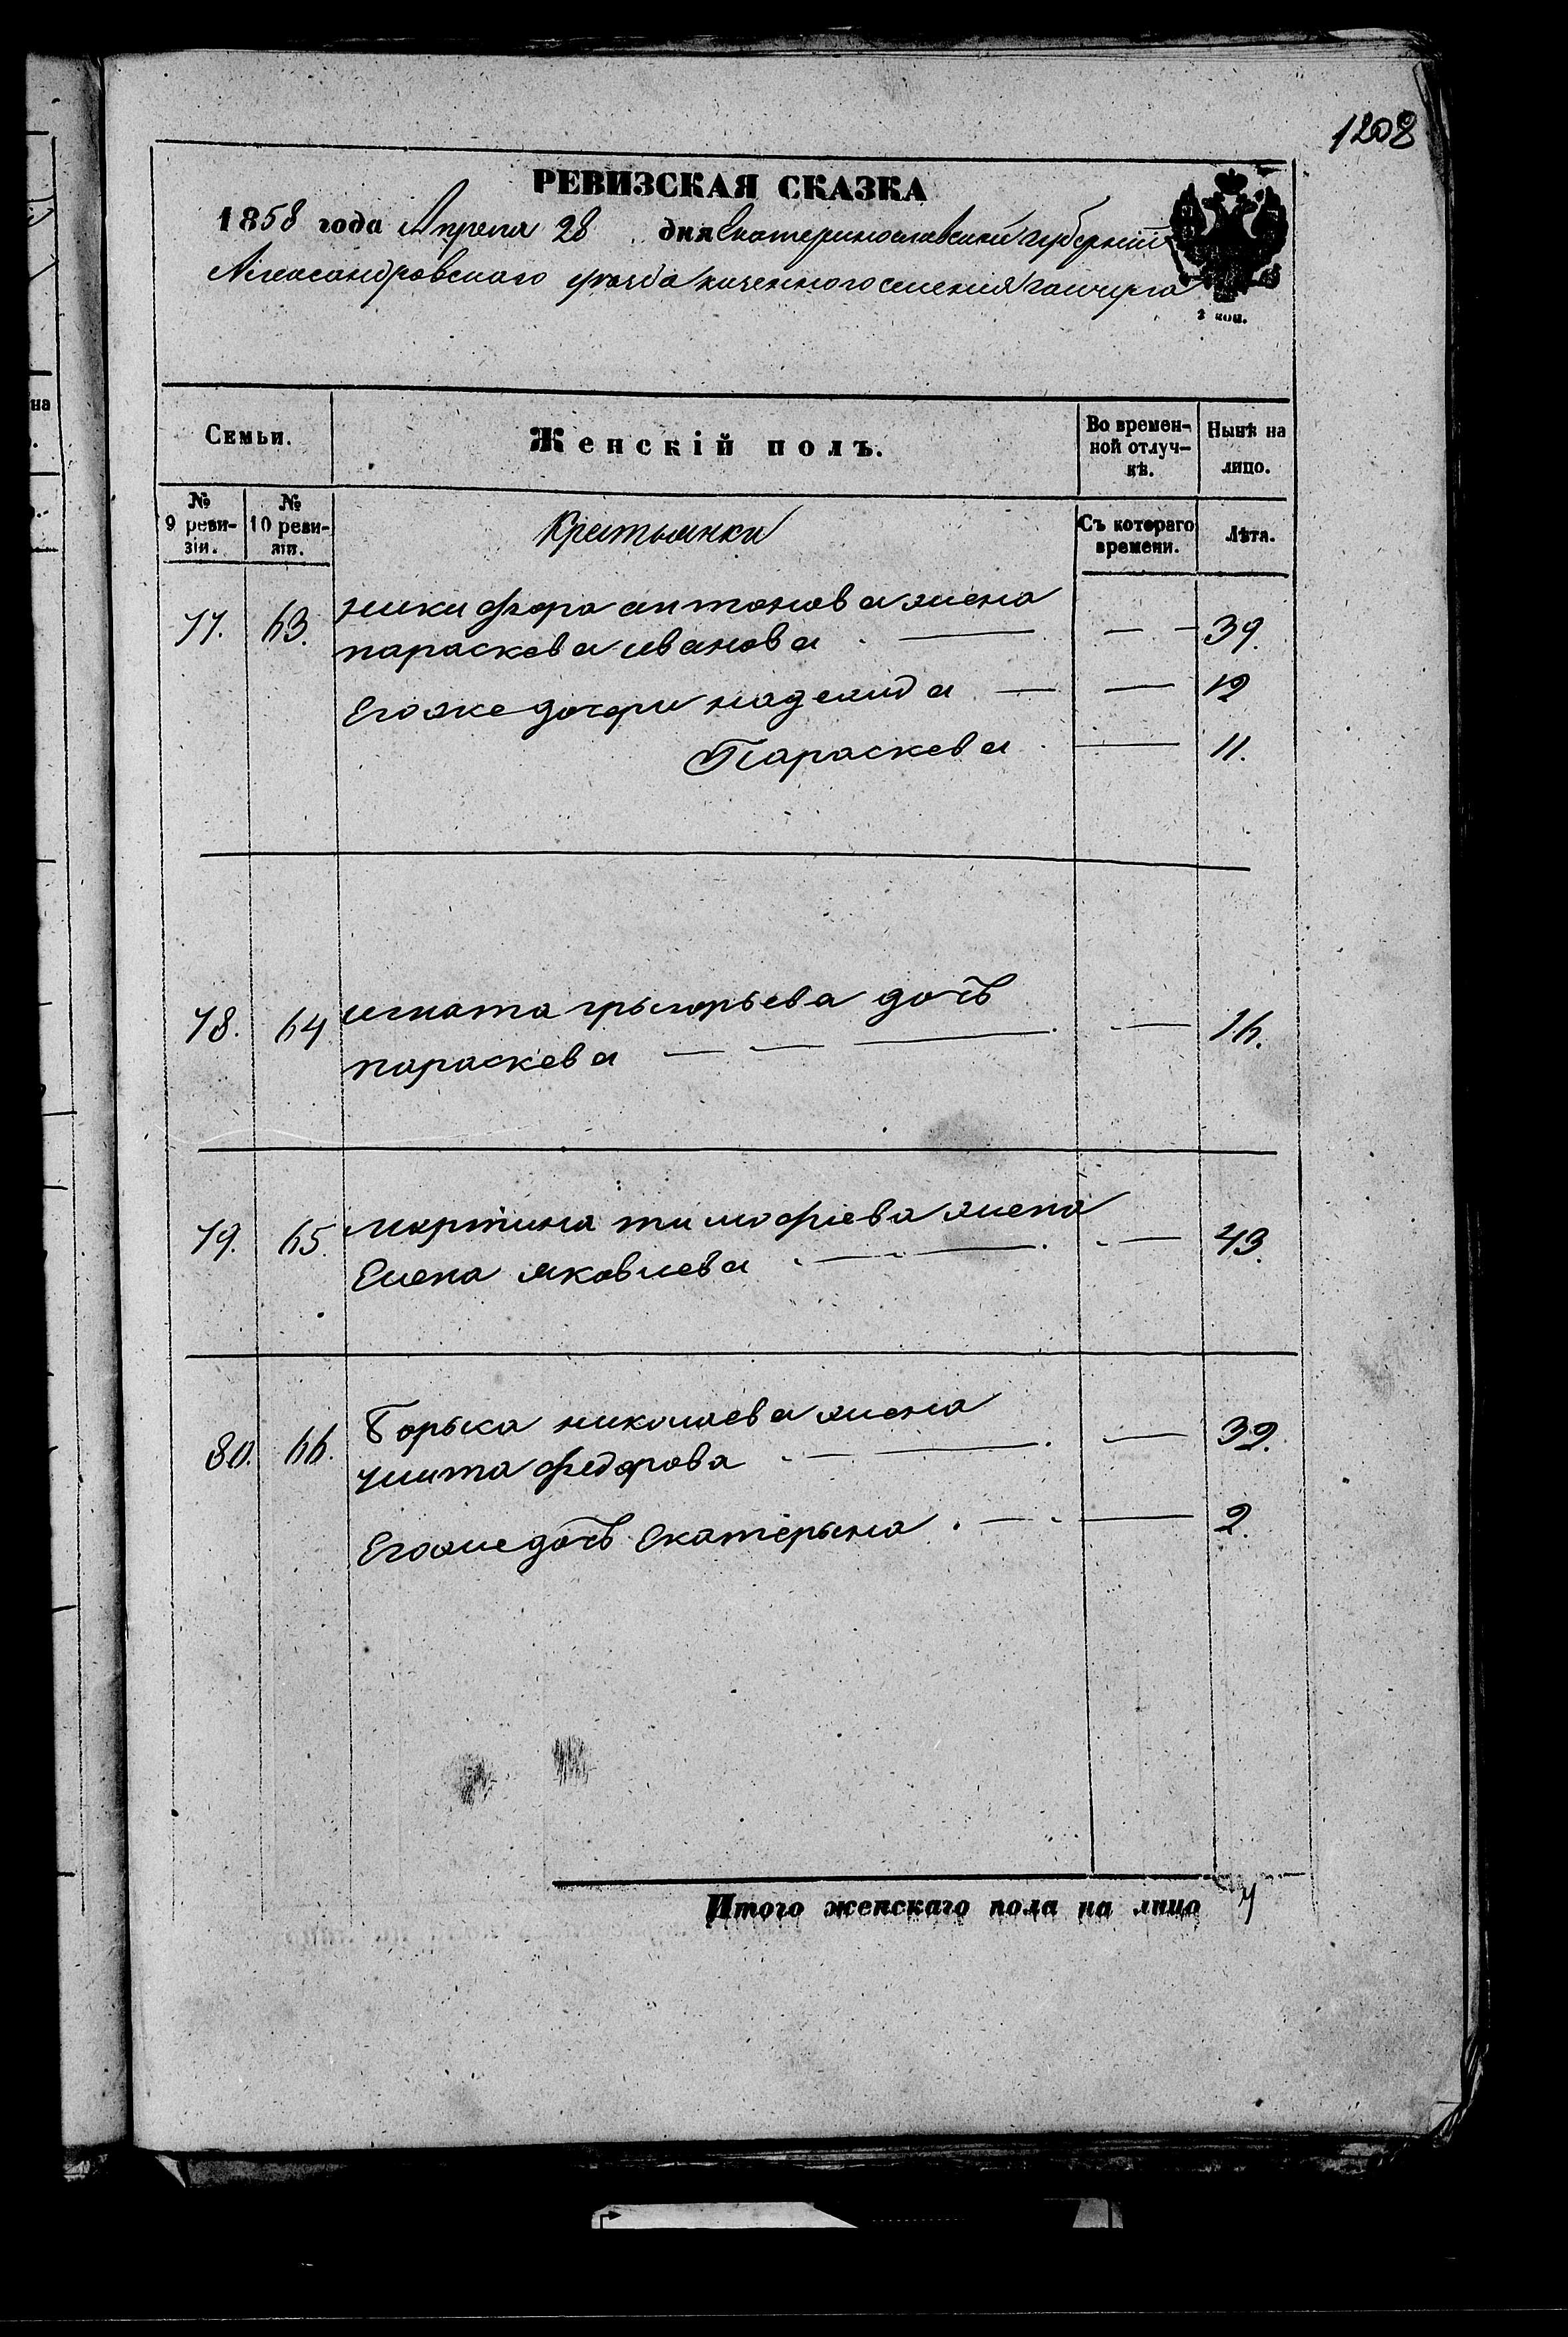 1208
РЕВИЗСКАЯ СКАЗКА
1858 года Апреля 28 дня Екатеринославской губернии
Александровского уезда казенного селения гайчура
2 коп.
Семьи.
Женскій полъ.
Во времен-
ной отлуч-
кѣ.
Нынѣ на
лицо.
№
9 реви-
зіи.
№
10 реви-
зіи.
Крестьянки
Съ котораго
времени.
Лѣта.
77. 63. никифора антонова жена
параскева иванова 39.
Егоже дочери надежда 12
Параскева 11.
78. 64 игната грыгорьева дочь
параскева 16.
79. 65. мартина тимофиева жена
Елена яковлева 43.
80. 66. Борыса николаева жена
улита федорова 39.
Егоже дочь Екатерына 2.
Итого женскаго пола на лицо 7
на